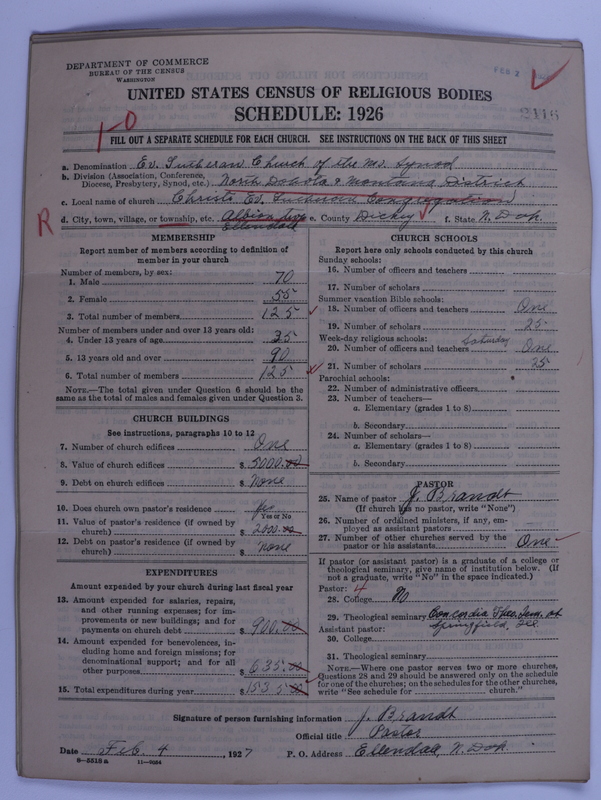 DEPARTMENT OF COMMERCE
BUREAU OF THE CENSUS
WASHINGTON
FEB 2
UNITED STATES CENSUS OF RELIGIOUS BODIES
SCHEDULE: 1926
1-0
FILL OUT A SEPARATE SCHEDULE FOR EACH CHURCH. SEE INSTRUCTIONS ON THE BACK OF THIS SHEET
a. Denomination Ev. Lutheran Church of the Mo. Synod
b. Division (Association, Conference,
Diocese, Presbytery, Synod, etc.) North Dakota & Montana District
c. Local name of church Christ Ev. Lutheran Congregation
R
d. City, town, village, or township, etc. Albion Twp e. County Dickey f. State N. Dak.
Ellendale
MEMBERSHIP
Report number of members according to definition of
member in your church
Number of members, by sex:
1. Male 70
2. Female 55
3. Total number of members 125
Number of members under and over 13 years old:
4. Under 13 years of age 35
5. 13 years old and over 90
6. Total number of members 125
NOTE.—The total given under Question 6 should be the
same as the total of males and females given under Question 3.
CHURCH BUILDINGS
See instructions, paragraphs 10 to 12
7. Number of church edifices One
8. Value of church edifices $ 5000.00
9. Debt on church edifices $ None
10. Does church own pastor's residence Yes
Yes or No
11. Value of pastor's residence (if owned by
church) $ 2000.00
12. Debt on pastor's residence (if owned by
church) $ None
EXPENDITURES
Amount expended by your church during last fiscal year
13. Amount expended for salaries, repairs,
and other running expenses; for im-
provements or new buildings; and for
payments on church debt $ 900.00
14. Amount expended for benevolences, in-
cluding home and foreign missions; for
denominational support; and for all
other purposes $ 635.00
15. Total expenditures during year $ 1535.00
CHURCH SCHOOLS
Report here only schools conducted by this church
Sunday schools:
16. Number of officers and teachers
17. Number of scholars
Summer vacation Bible schools:
18. Number of officers and teachers One
19. Number of scholars 25
Week-day religious schools: Saturday
20. Number of officers and teachers One
21. Number of scholars 25
Parochial schools:
22. Number of administrative officers
23. Number of teachers—
a. Elementary (grades 1 to 8)
b. Secondary
24. Number of scholars—
a. Elementary (grades 1 to 8)
b. Secondary
PASTOR
25. Name of pastor J. Brandt
(If church has no pastor, write "None")
26. Number of ordained ministers, if any, em-
ployed as assistant pastors
27. Number of other churches served by the
pastor or his assistants One
If pastor (or assistant pastor) is a graduate of a college or
theological seminary, give name of institution below. (If
not a graduate, write "No" in the space indicated.)
Pastor: 4
28. College No
29. Theological seminary Concordia Theo. Sem. at
Springfield, Ill.
Assistant pastor:
30. College
31. Theological seminary
NOTE.—Where one pastor serves two or more churches,
Questions 28 and 29 should be answered only on the schedule
for one of the churches; on the schedules for the other churches,
write "See schedule for church."
Signature of person furnishing information J. Brandt
Official title Pastor
Date Feb. 4, 1927 P. O. Address Ellendale, N. Dak.
8—5518a 11—9084